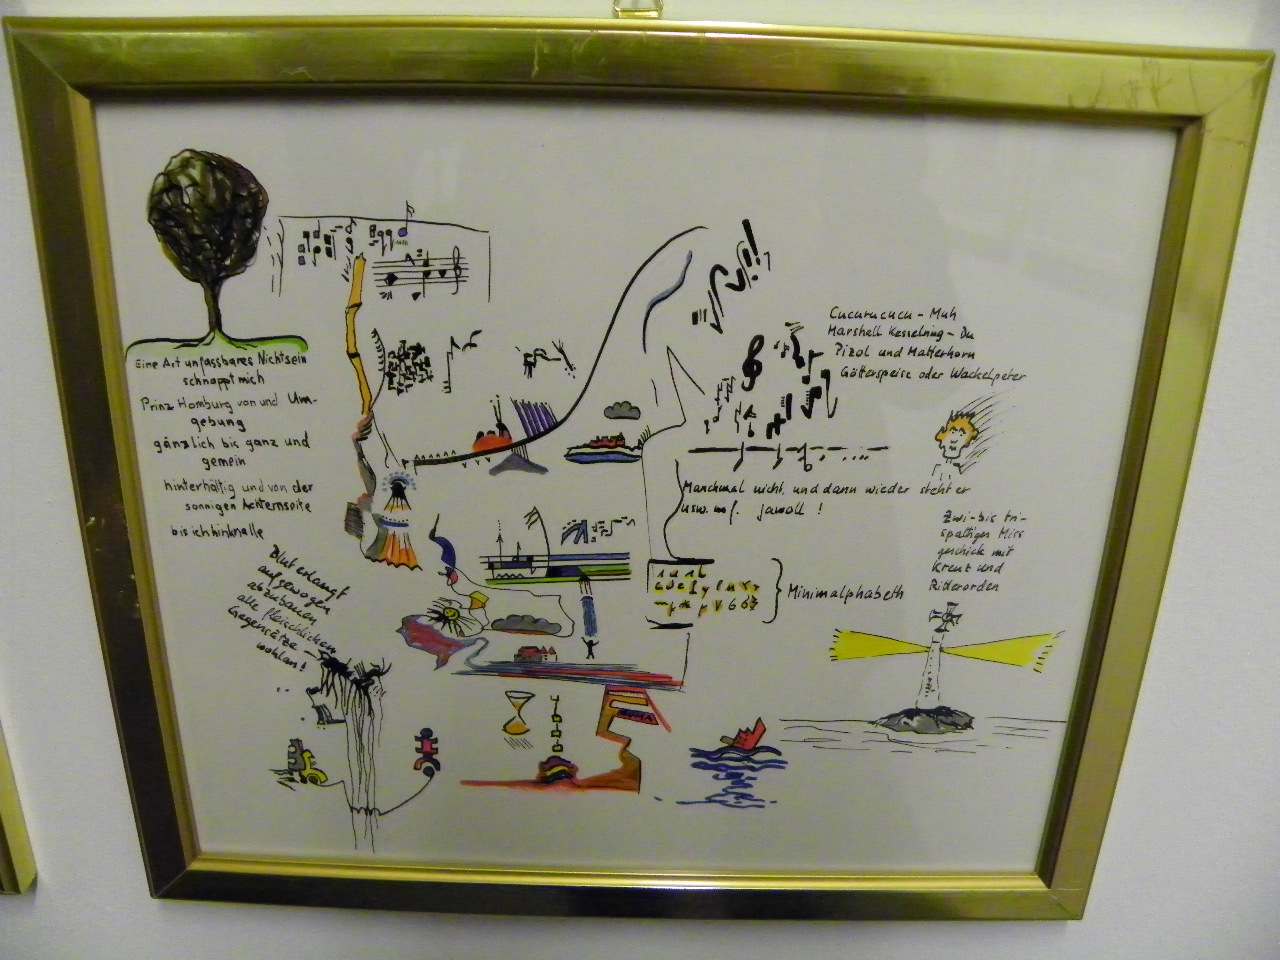 Eine Art unfassbares Nichtsein
schnappt mich
Prinz Homburg von und Um-
gebung
gänzlich bis ganz und
gemein
hinterhältig und von der
sonnigen Achternseite
bis ich hinknalle
Blut erlangt
aufgewogen
abzubauen
alle fleischlichen
Gegensätze –
wohlan!
Cucurucucu – Muh
Marshall Kesselring – Du
Pizol und Matterhorn
Götterspeise oder Wackelpeter
Manchmal nicht, und dann wieder steht er
usw. uf. jawoll!
Zwi- bis tri-
spaltiges Miss
geschick mit
Kreuz und
Ritterorden
Minimalphabeth